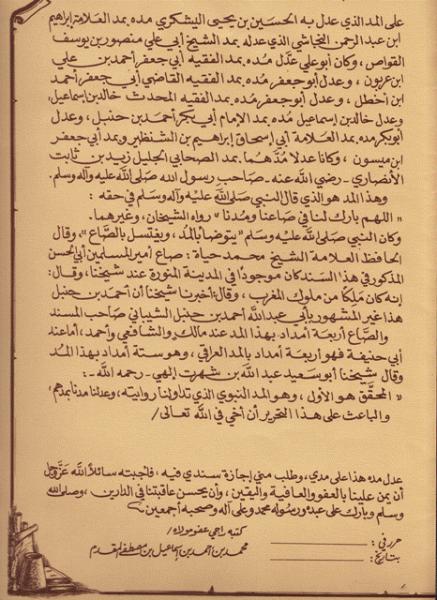 على المد الذي عدل به الحسين بن يحيى البشكري مده بمد العلامة إبراهيم
ابن عبد الرحمن الجياشي الذي عدله بمد الشيخ أبي علي منصور بن يوسف
القواص، وكان أبو علي عدل مده بمد الفقيه أبي جعفر أحمد بن علي
ابن عزبون، وعدل أبو جعفر مُده بمد الفقيه القاضي أبي جعفر أحمد
ابن أخطل، وعدل أبو جعفر مده بمد الفقيه المحدث خالد بن إسماعيل،
وعدل خالد بن إسماعيل مده بمد الإمام أبي بكر أحمد بن حنبل، وعدل
أبو بكر مده بمد العلامة أبي إسحاق إبراهيم بن الشنظير وبمد أبي جعفر
ابن ميسون، وكانا عدلا مُدَّهما. بمد الصحابي الجليل زيد بن ثابت
الأنصاري - رضي الله عنه - صاحب رسول الله صلى الله عليه وآله وسلم.
وهذا المد هو الذي قال النبي صلى الله عليه وآله وسلم في حقه :
« اللهم بارك لنا في صاعنا ومدنا » رواه الشيخان، وغيرهما.
وكان النبي صلى الله عليه وسلم "يتوضأ بالمد، ويغتسل بالصَّاع"، وقال
الحافظ العلامة الشيخ محمد حياة : صاع أمير المسلمين أبي الحسن
المذكور في هذا السند كان موجودًا في المدينة المنورة عند شيخنا، وقال:
إنه كان مَلِكًا من ملوك المغرب، وقال: أخبرنا شيخنا أن أحمد بن حنبل
هذا غير المشهور بأبي عبد الله أحمد بن حنبل الشيباني صاحب المسند
والصَّاع أربعة أمداد بهذا المد عند مالك والشافعي وأحمد، أما عند
أبي حنيفة فهو أربعة أمداد بالمد العراقي، وهو ستة أمداد بهذا المد
وقال شيخنا أبو سعيد عبد الله بن شهرت إلهي - رحمه الله - :
« المحقَّق هو الأول، وهو المد النبوي الذي تداولنا روايته، وعدلنا مدنا بمدهم،
والباعث على هذا التحرير أن أخي في الله تعالى /
عدل مده هذا على مدي، وطلب مني إجازة سندي فيه : فأجبته سائلاً الله عزّ وجل
أن يمن علينا بالعفو والعافية واليقين، وأن يحسن عاقبتنا في الدارين، وصلى الله
وسلم وبارك على عبده ورسوله محمد وعلى آله وصحبه أجمعين.
كتبه راجي عفو مولاه /
محمد بن أحمد بن إسماعيل بن مصطفى المقدم
حرر في :
بتاريخ :